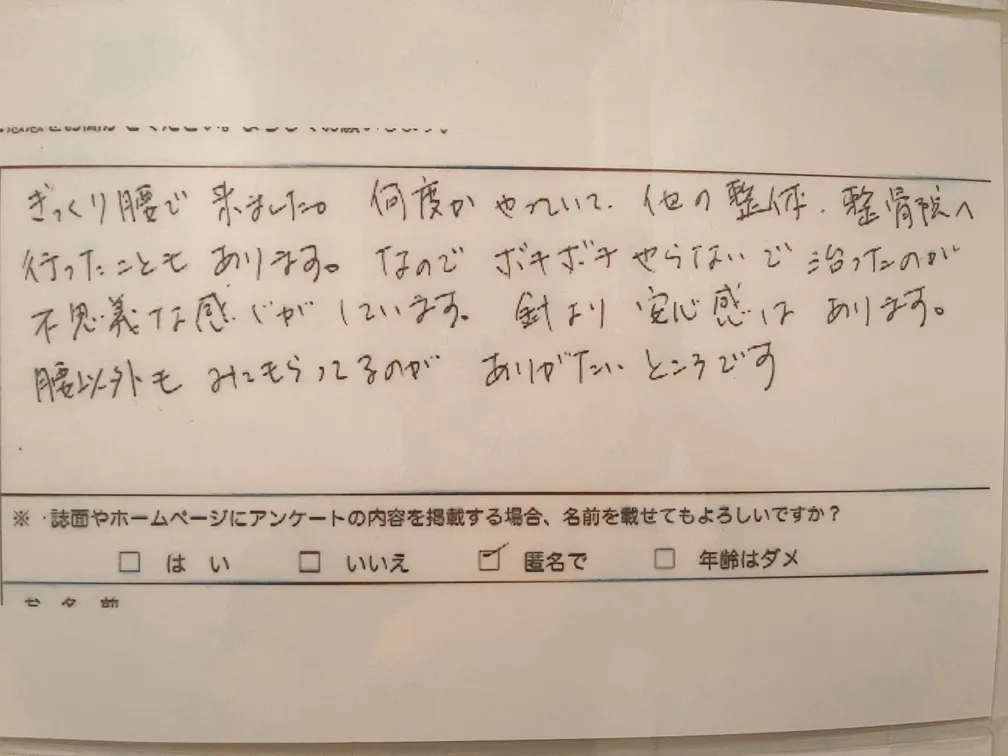 ぎっくり腰で 来ました。 何度か やっていて、他の整体、整骨院へ
行ったことも あります。 なので ボキボキ やらないで 治ったのが
不思議な感じが しています。 針より 安心感は あります。
腰以外も みてもらってるのが ありがたい ところです
※ ・誌面やホームページにアンケートの内容を掲載する場合、名前を載せてもよろしいですか？
□ は い □ いいえ ☑ 匿名で □ 年齢はダメ
お 名 前